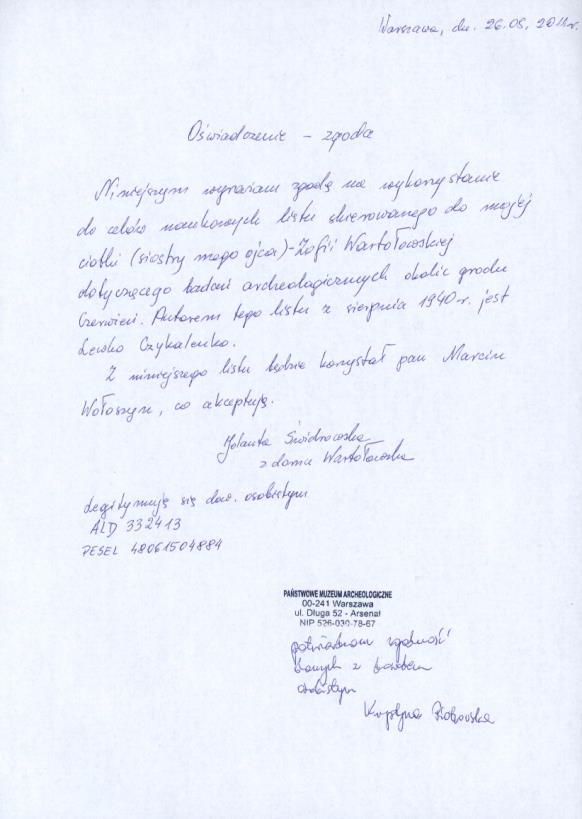 Warszawa, dn. 26.05.2011r.
Oświadczenie - zgoda
Niniejszym wyrażam zgodę na wykorzystanie
do celów naukowych listu skierowanego do mojej
ciotki (siostry mego ojca) - Zofii Wartołowskiej
dotyczącego badań archeologicznych okolic grodu
Czerwień. Autorem tego listu z sierpnia 1940 r. jest
Lewko Czykalenko.
Z niniejszego listu będzie korzystał pan Marcin
Wołoszyn, co akceptuję.
Jolanta Świdrowska
z domu Wartołowska
Legitymuję się dow. osobistym
ALD 332413
PESEL 48061504884
PAŃSTWOWE MUZEUM ARCHEOLOGICZNE
00-241 Warszawa
ul. Długa 52 - Arsenał
NIP 526-030-78-67
potwierdzam zgodność
danych z dowodem
osobistym
Krystyna Piotrowska